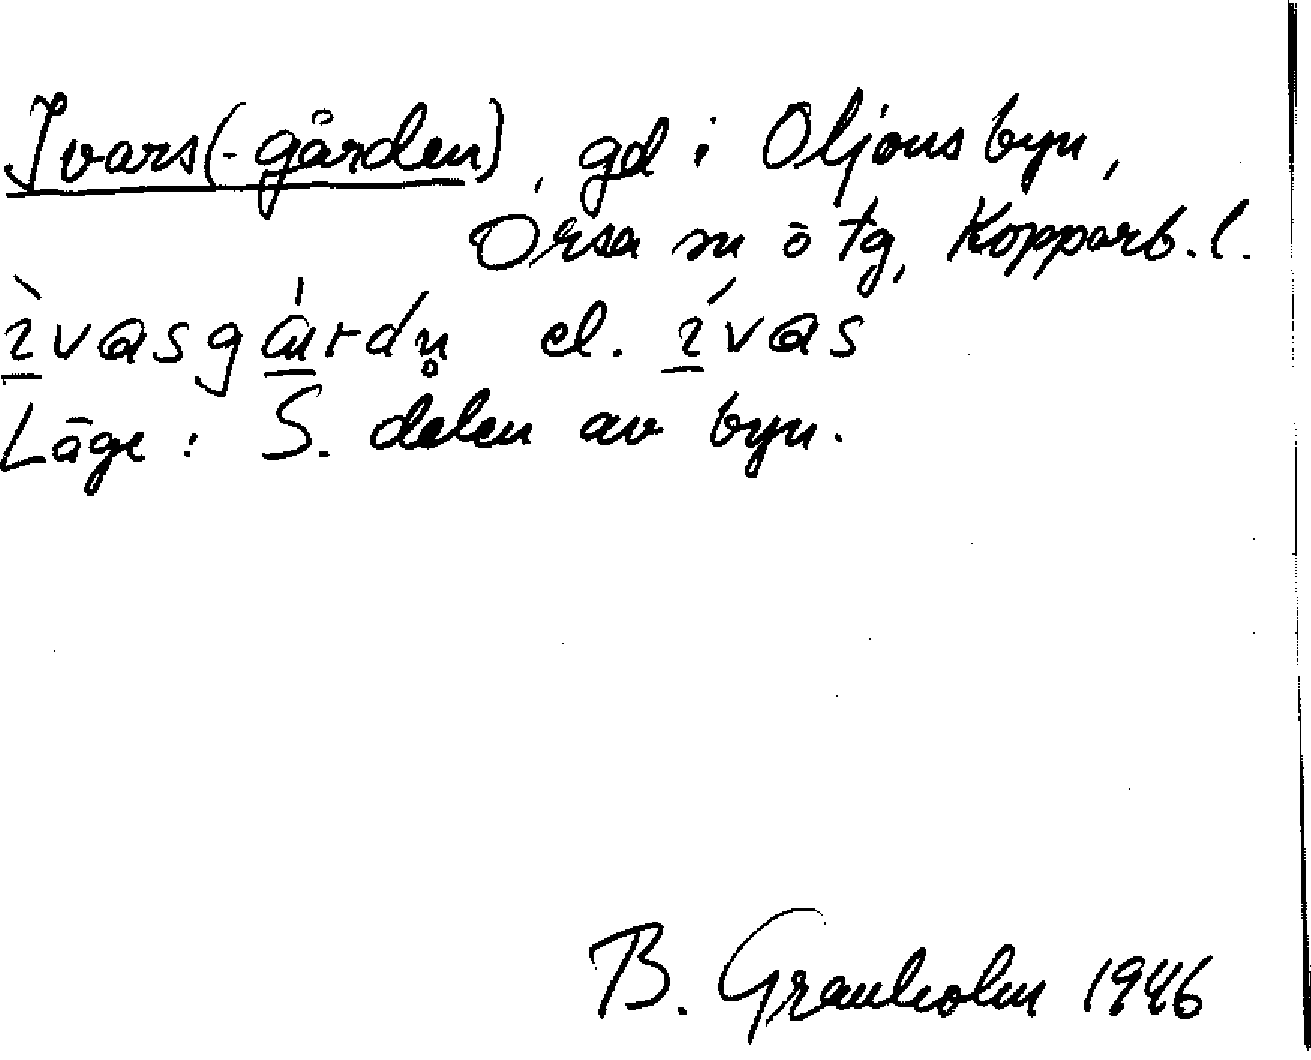 Ivars(-gården), gd i Oljonsbyn,
Orsa sn o tg, Kopparb. l.
ì̱vasgá̱u̱rdn̥ el. í̱vas
Läge: S. delen av byn.
B. Granholm 1946